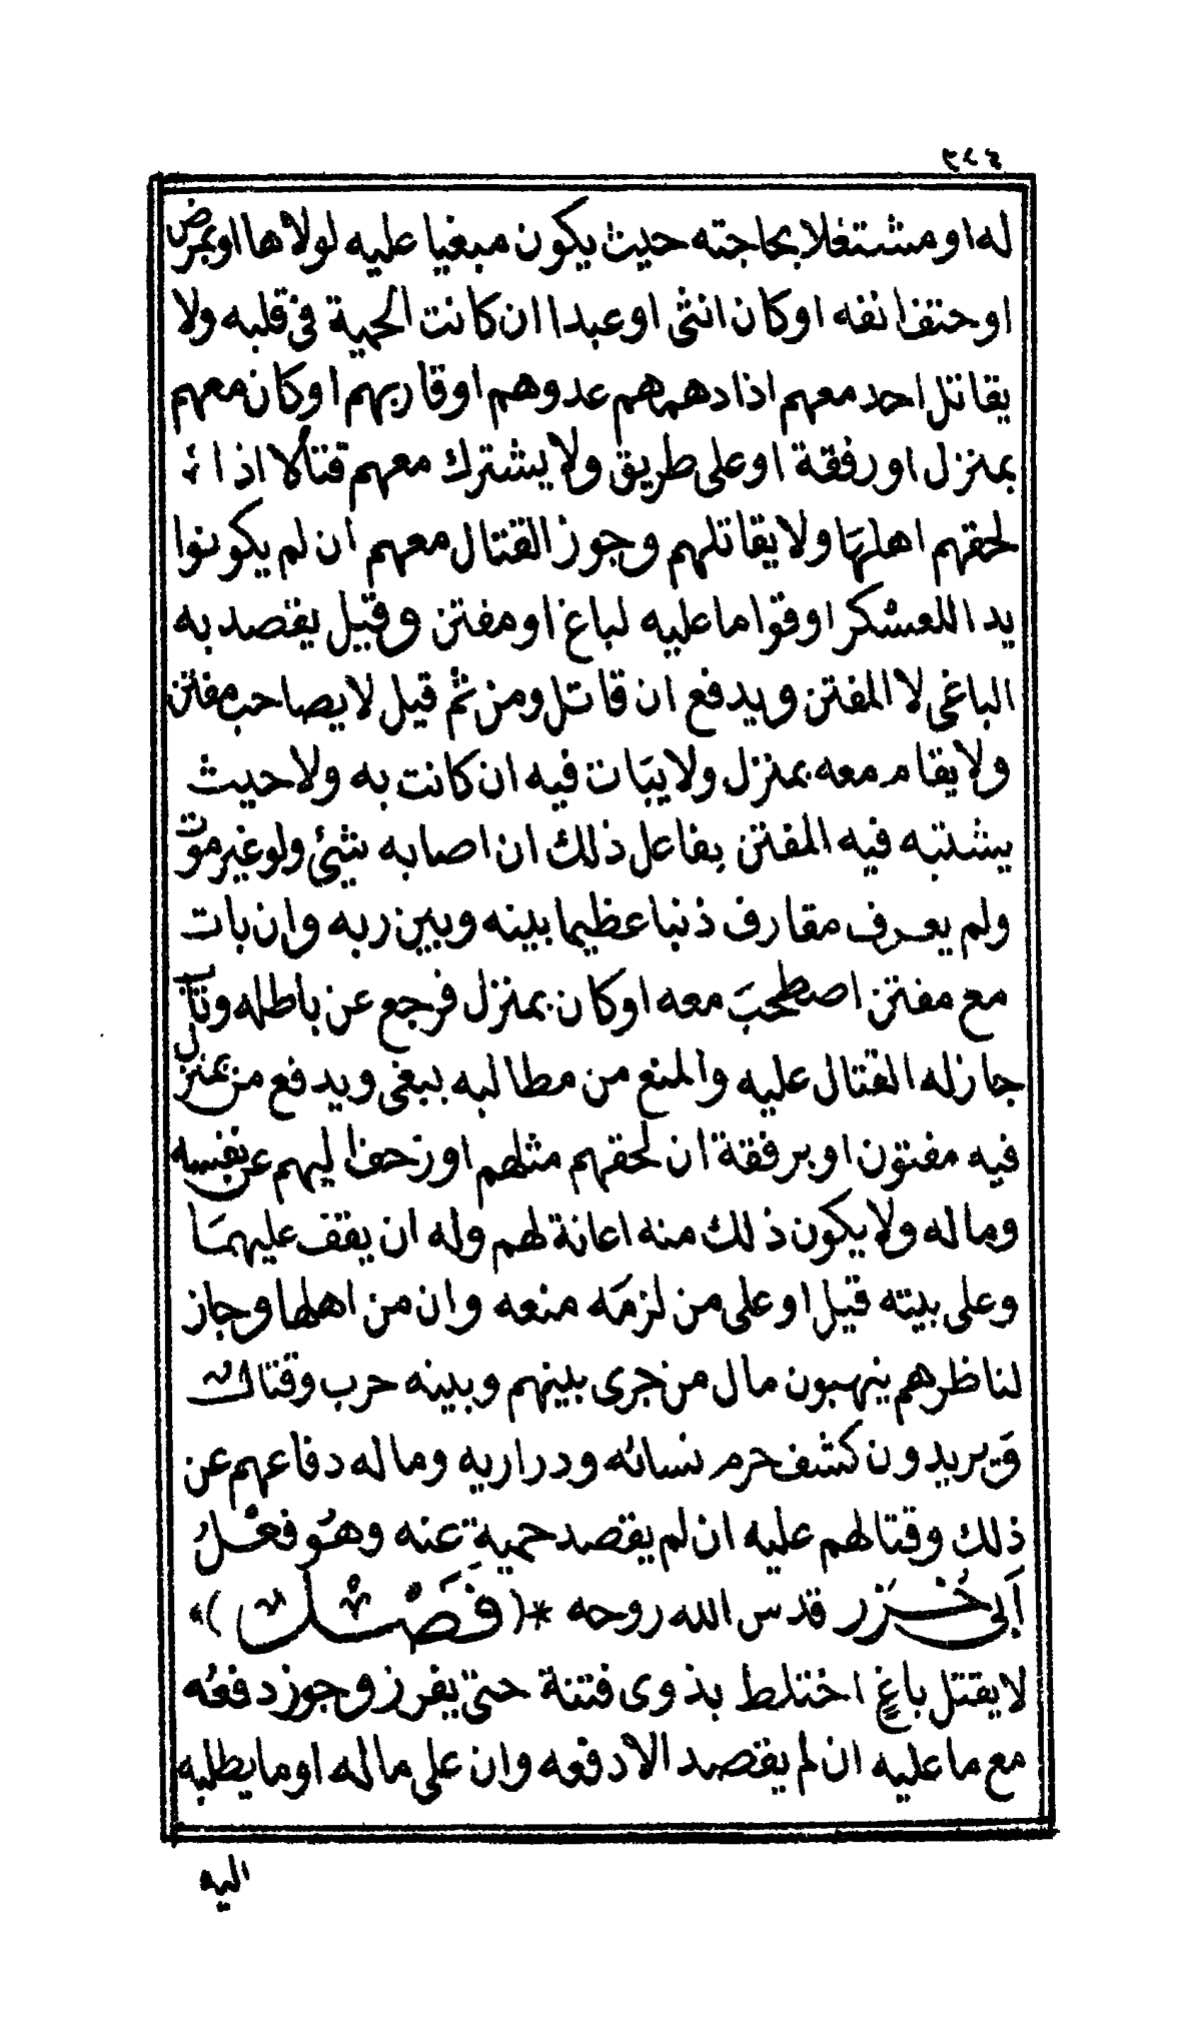 له او مشتغلا بحاجته حيث يكون مبغيا عليه لولاها او بمرض
او حتف انفه او كان انثى او عبدا ان كانت الحمية فى قلبه ولا
يقاتل احد معهم اذا دهمهم عدوهم او قاربهم او كان معهم
بمنزل او رفقة او على طريق ولا يشترك معهم قتالا اذا
لحقهم اهلها ولا يقاتلهم وجوز القتال معهم ان لم يكونوا
يدا للعسكر او قواما عليه لباغ او مفتن وقيل يقصد به
الباغى لا المفتن ويدفع ان قاتل ومن ثم قيل لا يصاحب مفتن
ولا يقام معه بمنزل ولا يبات فيه ان كانت به ولا حيث
يشتبه فيه المفتن بفاعل ذلك ان اصابه شئ ولو غير موت
ولم يعرف مقارف ذنبا عظيما بينه وبين ربه وان بات
مع مفتن اصطحب معه او كان بمنزل فرجع عن باطله وتاب
جاز له القتال عليه والمنع من مطالبه ببغى ويدفع من بمنزل
فيه مفتون او برفقة ان لحقهم مثلهم او زحف اليهم عن نفسه
وماله ولا يكون ذلك منه اعانة لهم وله ان يقف عليهما
وعلى بيته قيل او على من لزمه منعه وان من اهلها وجاز
لناظرهم ينهبون مال من جرى بينهم وبينه حرب وقتال
ويريدون كشف حرم نسائه ودراريه وماله دفاعهم عن
ذلك وقتالهم عليه ان لم يقصد حمية عنه وهو فعل
أبى خزر قدس الله روحه *( فصل )*
لا يقتل باغ اختلط بذوى فتنة حتى يفرز وجوز دفعه
مع ما عليه ان لم يقصد الا دفعه وان على ماله او ما يطلبه
اليه